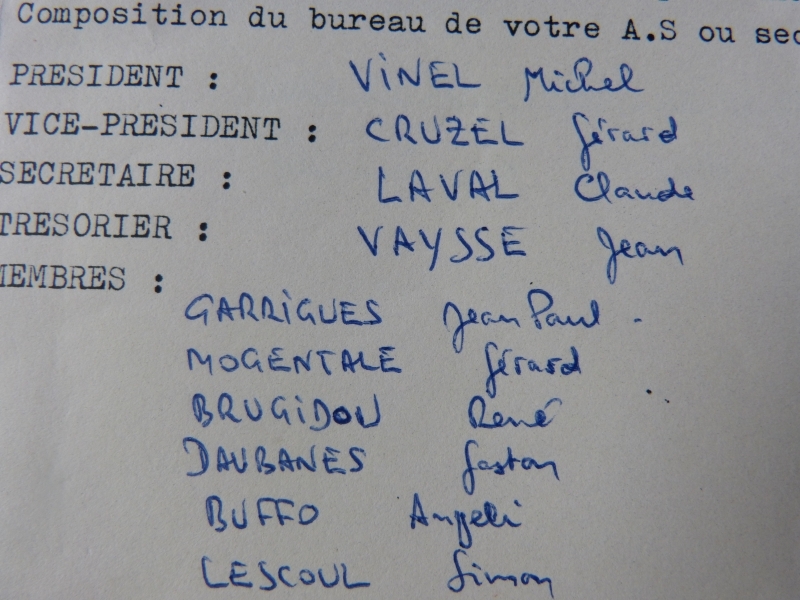 Composition du bureau de votre A.S ou sec
PRESIDENT : VINEL Michel
VICE-PRESIDENT : CRUZEL Gérard
SECRETAIRE : LAVAL Claude
TRESORIER : VAYSSE Jean
MEMBRES :
GARRIGUES Jean Paul -
MOGENTALE Gérard
BRUGIDOU René
DAUBANES Gaston
BUFFO Angeli
LESCOUL Simon